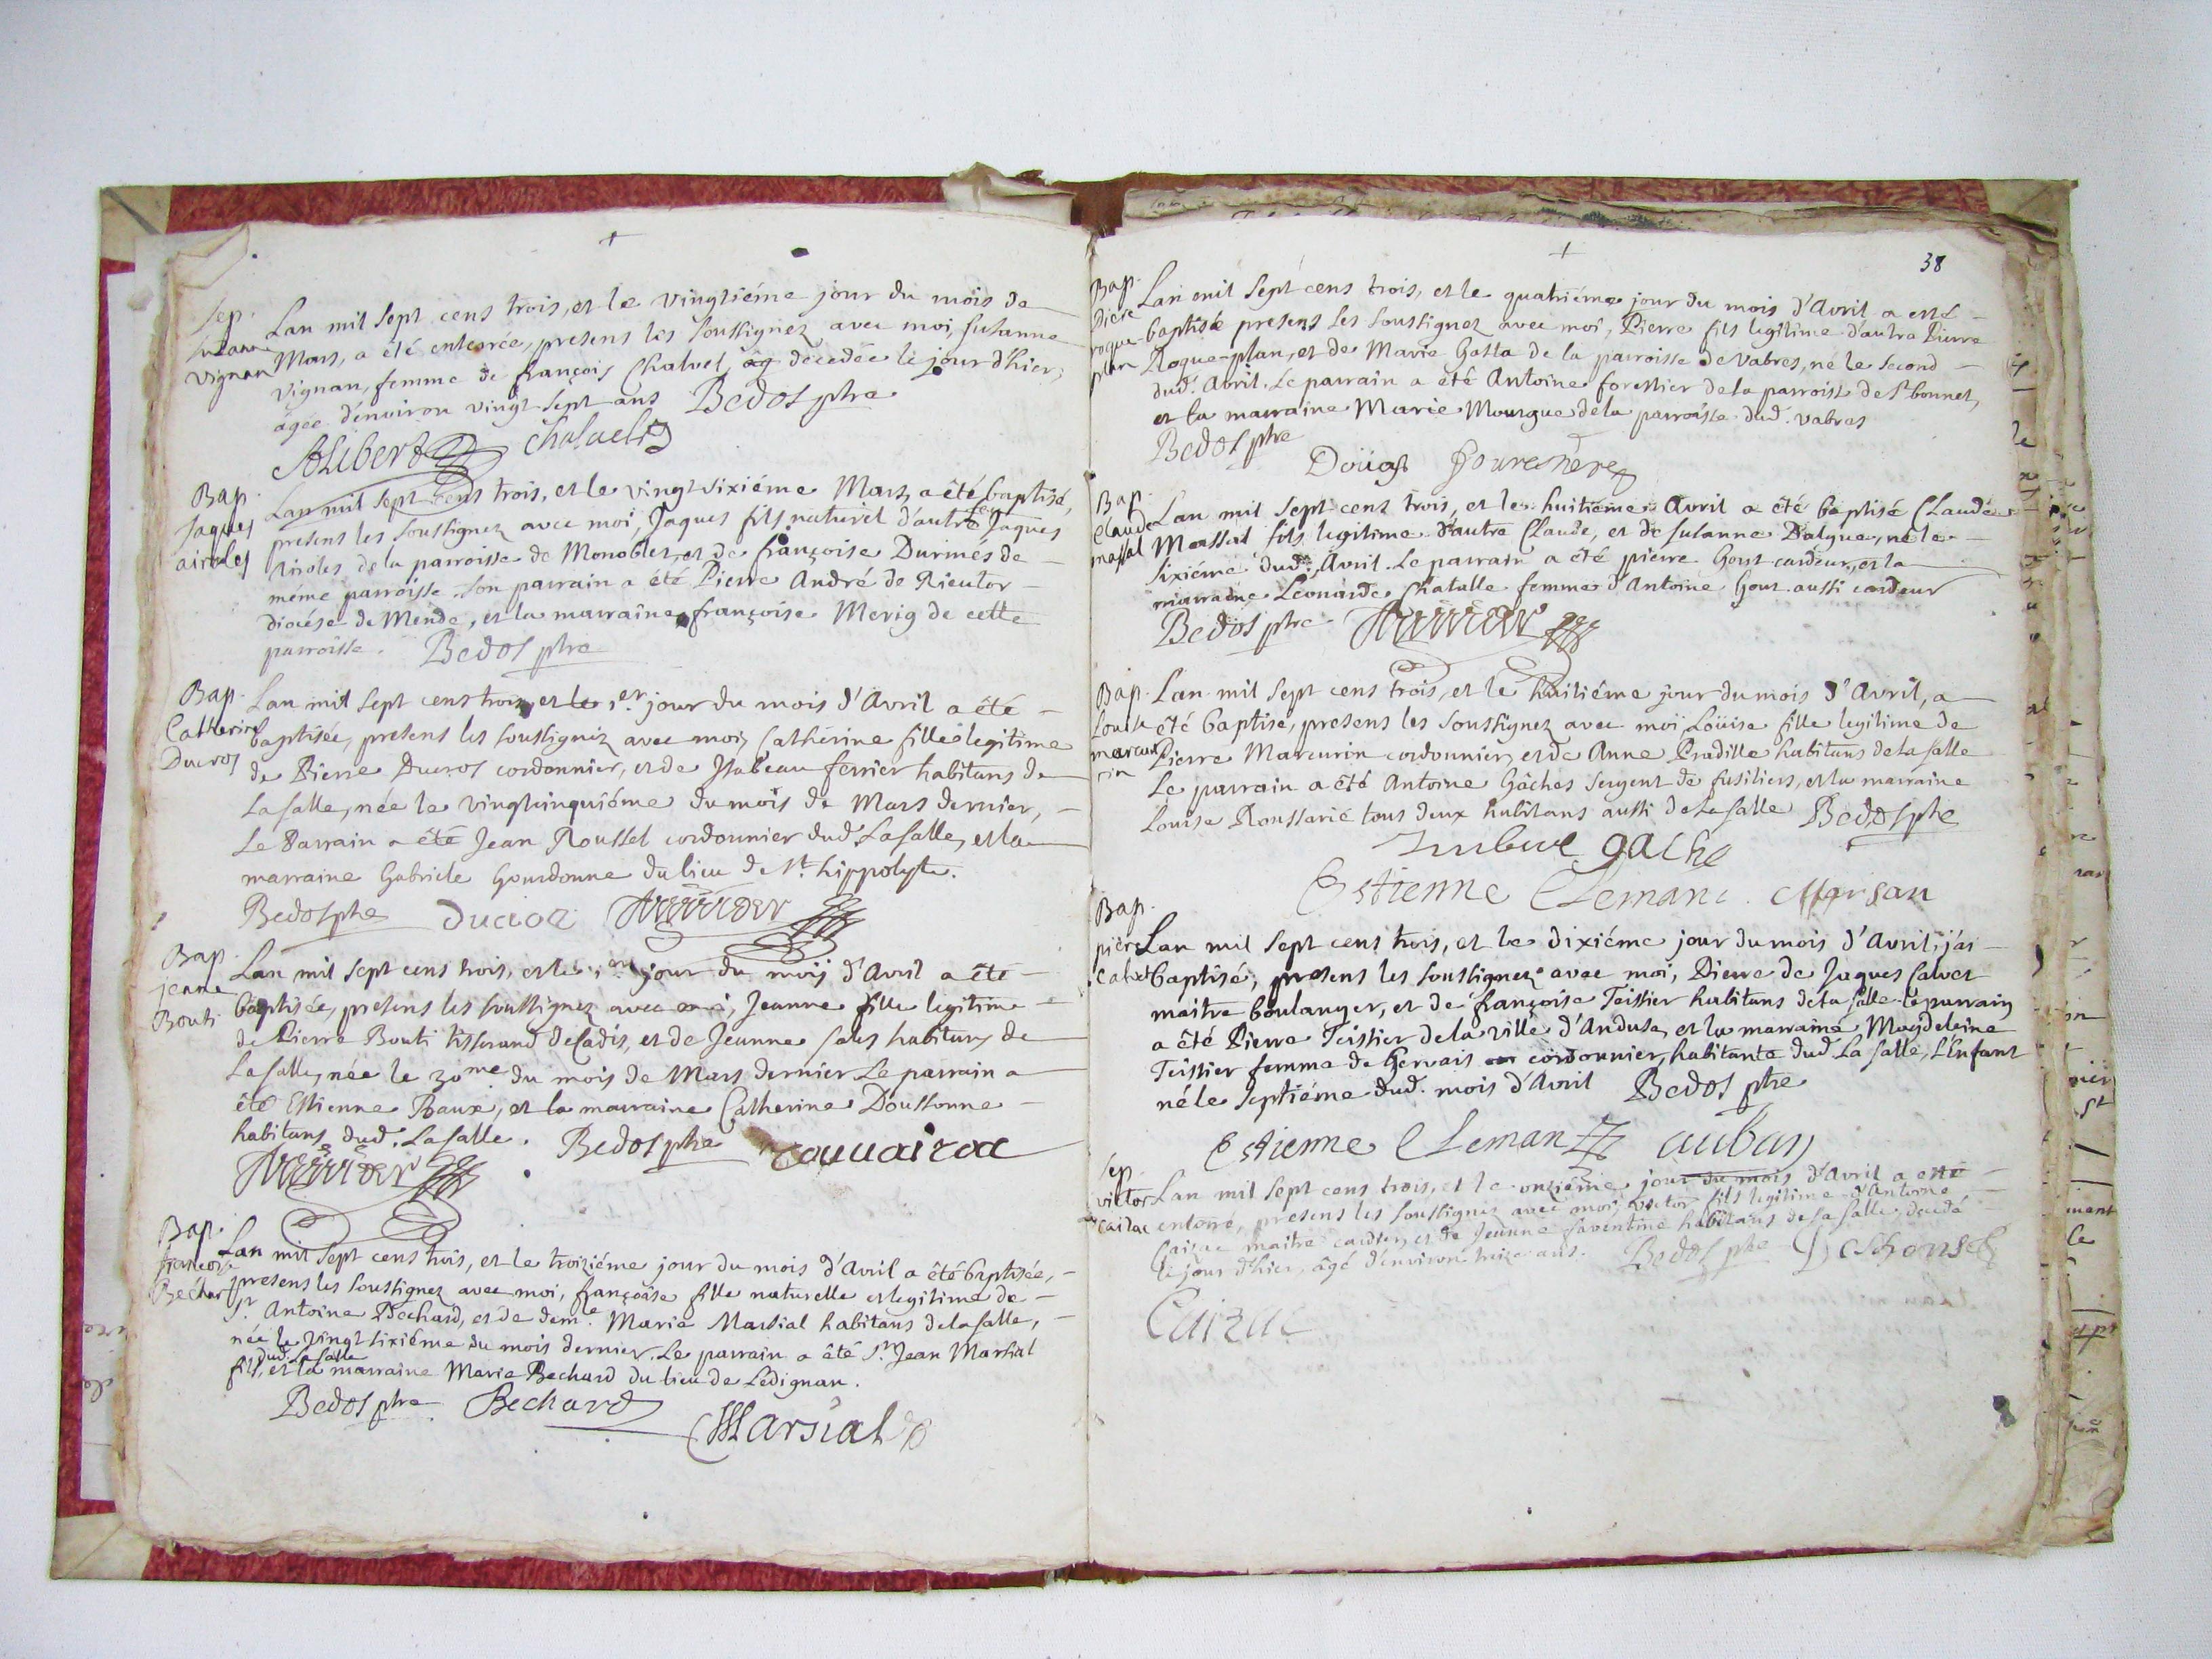 Sep.
Susanne
Vignan
Lan mil sept cens trois, et le vingtiéme jour du mois de
Mars, a été enterrée, presens les soussignez avec moi, susanne
Vignan, femme de françois Chalvet, decedée le jour d'hier,
âgée d'environ vingt sept ans Bedos ptre
Alibert Chaluet
Bap.
Jaques
airoles
Lan mil sept cens trois, et le vingt sixiéme Mars, a été baptisé,
presens les soussignez avec moi, Jaques fils naturel d'autre Jaques
Airoles de la parroisse de Monoblet, et de françoise Durinés de
même parroisse. Son parrain a été Pierre André de Rieutor
diocése de Mende, et la marraine françoise Merig de cette
parroisse. Bedos ptre
Bap.
Catherine
Ducros
Lan mil sept cens trois, et le 1.er jour du mois d'Avril a été
baptisée, presens les soussignez avec moi, Catherine fille legitime
de Pierre Ducros cordonnier, et de Isabeau ferrier habitans de
Lasalle, née le vingt cinquiéme du mois de Mars dernier,
Le Parrain a été Jean Roussel cordonnier dud. Lasalle, et la
marraine Gabriele Gourdonne du lieu de St. hippolyte.
Bedos ptre ducros
Bap.
jenne
Bouti
Lan mil sept cens trois, et le 1.er jour du mois d'Avril a été
baptisée, presens les soussignez avec moi, Jeanne fille legitime
de Pierre Bouti tisserand de Cadis, et de Jeanne Sales habitans de
Lasalle, née le 30me du mois de Mars dernier Le parrain a
été Estienne Raux, et la marraine Catherine Doussonne
habitans dud. Lasalle. Bedos ptre
Bap.
francoise
Bechard
Lan mil sept cens trois, et le troisiéme jour du mois d'Avril a été baptisée,
presens les soussignez avec moi, françoise fille naturelle et legitime de
Sr. Antoine Bechard, et de demle. Marie Marsial habitans de lasalle,
née le vingt sixiéme du mois dernier. Le parrain a été Sr. Jean Marsial
dud. Lasalle
fils, et la marraine Marie Bechard du lieu de Ledignan.
Bedos ptre Bechard
Marsial
38
Bap.
Piere
roque-
plan
Lan mil sept cens trois, et le quatriéme jour du mois d'Avril a esté
baptisé presens les soussignez avec moi, Pierre fils legitime d'autre Pierre
Roque-plan, et de Marie Gatta de la parroisse de Vabres, né le second
dud. Avril. Le parrain a été Antoine forestier de la parroisse de St bonnet,
et la marraine Marie Mourgue de la parroisse dud. Vabres
Bedos ptre
Bap.
Claude
massal
Lan mil sept cens trois, et le huitiéme Avril a été baptisé Claude
Massal fils legitime d'autre Claude, et de susanne Dalgue, né le
sixiéme dud. Avril. Le parrain a été pierre Gout cardeur, et la
marraine Leonarde Chatalle femme d'Antoine Gout aussi cardeur
Bedos ptre
Bap.
Louise
marcurin
Lan mil sept cens trois, et le huitiéme jour du mois d'Avril, a
été baptisé, presens les soussignez avec moi Loüise fille legitime de
Pierre Marcurin cordonnier, et de Anne Pradille habitans de Lasalle
Le parrain a été Antoine Gâches sergent de fusiliers, et la marraine
Louise Roussarié tous deux habitans aussi de Lasalle Bedos ptre
gache
Estienne Clemant Marsan
Bap.
piere
Calvet
Lan mil sept cens trois, et le dixiéme jour du mois d'Avril, j'ai
baptisé, presens les soussignez avec moi, Pierre de Jaques Calvet
maitre boulanger, et de françoise Teissier habitans de la salle le parrain
a été Pierre Teissier de la ville d'Anduse, et la marraine Magdeleine
Teissier femme de Gervais cordonnier, habitante dud. La salle, L'Enfant
né le septiéme dud. mois d'Avril Bedos ptre
Estienne Clemant auban
Sep.
viktor
Caizac
Lan mil sept cens trois, et le onziéme jour du mois d'Avril a esté
enterré, presens les soussignez avec moi, Victor, fils legitime d'Antoine
Caizac maitre cardeur, et de Jeanne Saventine habitans de Lasalle, decedé
le jour d'hier, âgé d'environ treize ans. Bedos ptre
Caizac